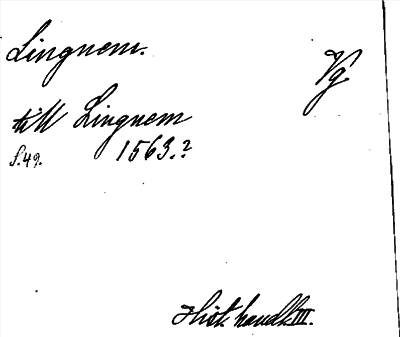 Lingnem.
Vg
till Lingnem
s. 49. 1563.?
Hist. handl. III.